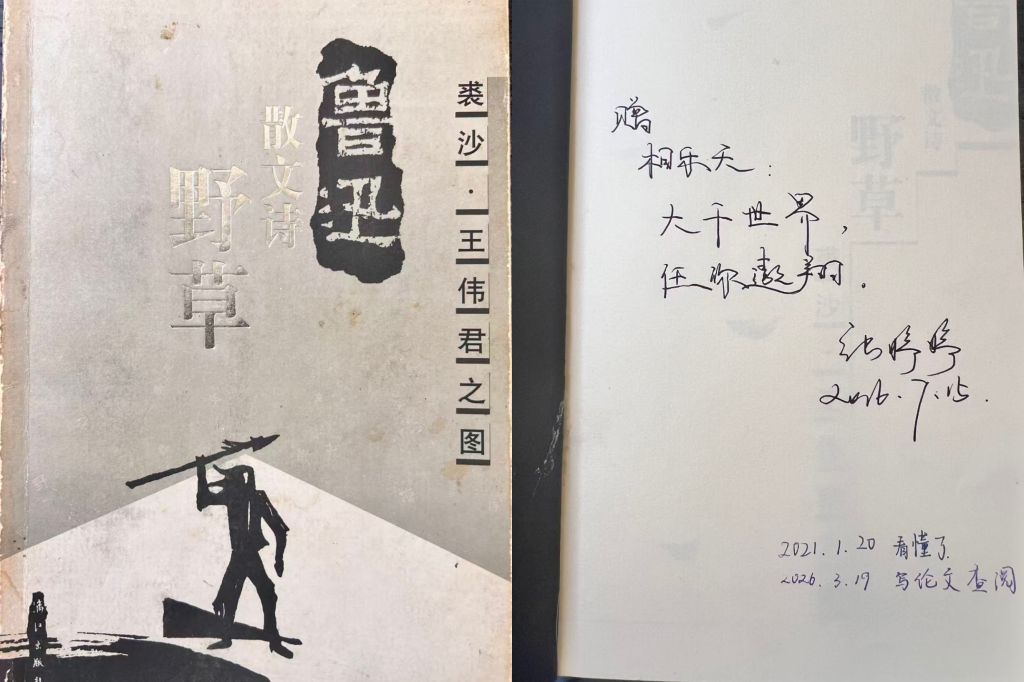 鲁迅
散文诗
野草
裘沙·王伟君之图
漓江出版社
赠
相乐天：
大千世界，
任你遨翔。
张婷婷
2016.7.15.
2021.1.20 看懂了
2026.3.19 写论文查阅